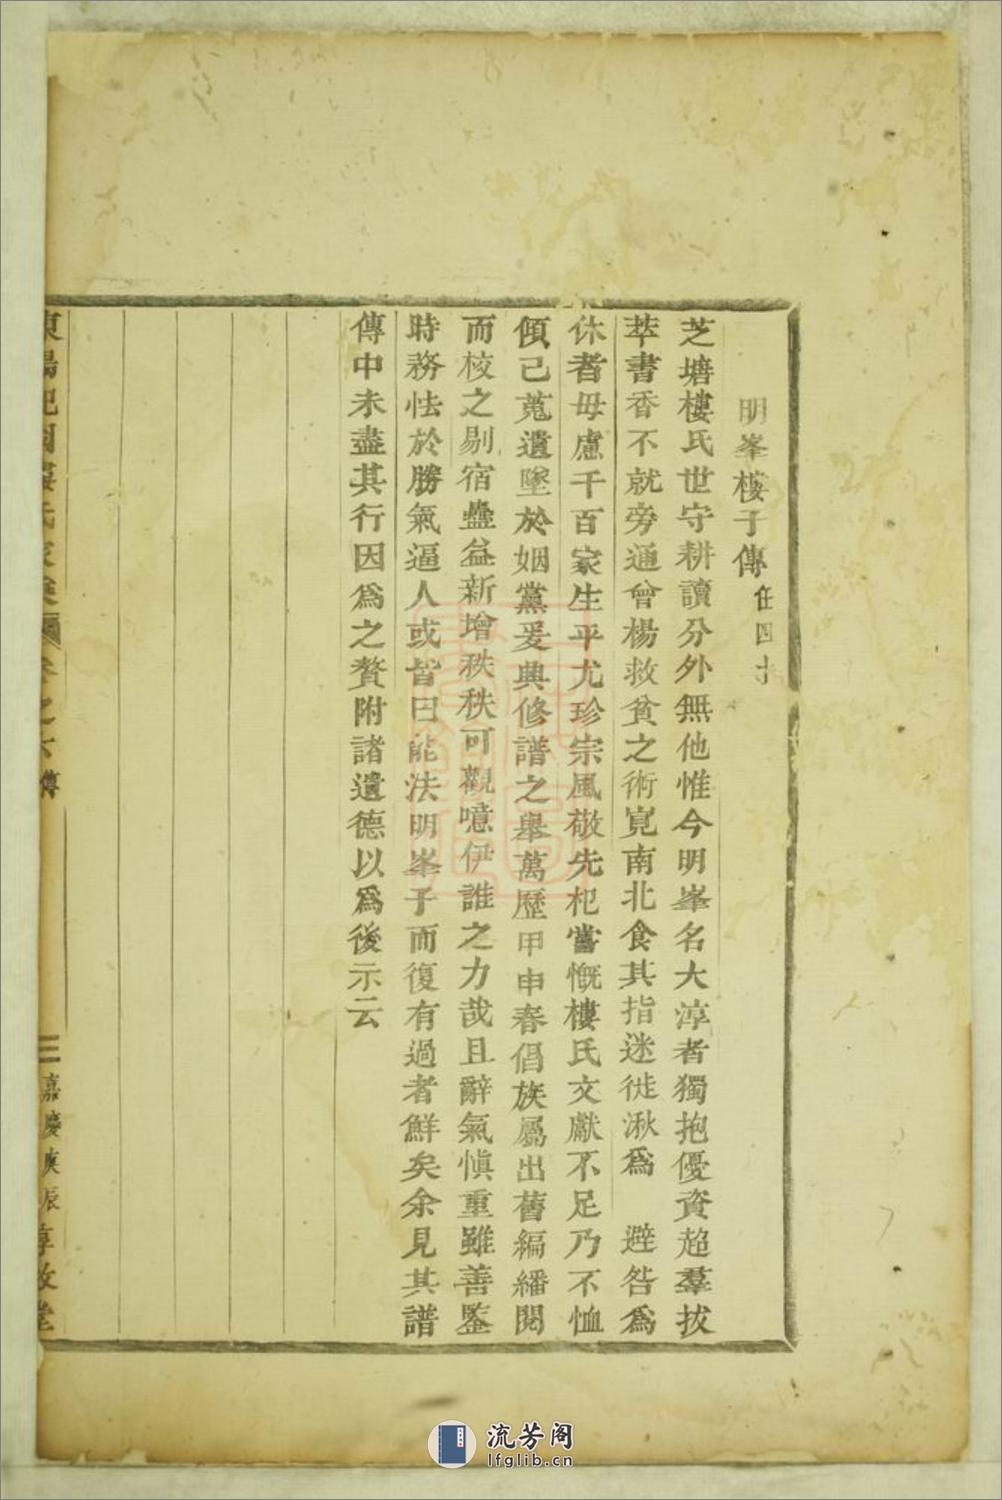 明峯樓子傳 任四十
芝塘樓氏世守耕讀分外無他惟今明峯名大淳者獨抱優資超羣拔
萃書香不就旁通曾楊救貧之術寛南北食其指迷徙湫爲 避咎爲
休者毋慮千百家生平尤珍宗風敬先杞嘗慨樓氏文獻不足乃不恤
傾己蒐遺墜於姻黨爰典修譜之舉萬歷甲申春倡族屬出舊編繙閱
而校之剔宿蠱益新增秩秩可觀噫伊誰之力哉且辭氣愼重雖善鑒
時務怯於勝氣逼人或皆曰能法明峯子而復有過者鮮矣余見其譜
傳中未盡其行因爲之贅附諸遺德以爲後示云
東陽 國 氏家 卷之六 傳 三 嘉慶庚辰 堂
流芳阁
lfglib.cn